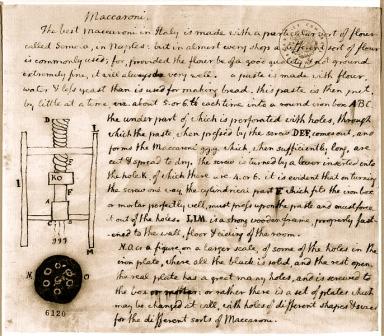 Maccaroni.
The best maccaroni in Italy is made with a particular sort of flour
called Semola, in Naples: but in almost every shop a different sort of flour
is commonly used; for, provided the flour be of a good quality & not ground
extremely fine, it will always do very well. a paste is made with flour,
water & less yeast than is used for making bread. this paste is then put,
by little at a time, viz. about 5. or 6. lb each time into a round iron box ABC.
the under part of which is perforated with holes, through
which the paste when pressed by the screw DEF, comes out, and
forms the Maccaroni ggg. which, when sufficiently long, are
cut & spread to dry. the screw is turned by a lever inserted into
the hole K. of which there are 4. or 6. it is evident that on turning
the screw one way the cylindrical part F which fits the iron box
or mortar perfectly well, must press upon the paste and must force it
out of the holes. LLM. is a strong wooden frame, properly fast-
ened to the wall, floor & cieling of the room.
N.O. is a figure on a larger scale, of some of the holes in the
iron plate, where all the black is solid, and the rest open.
the real plate has a great many holes, and is screwed to
the box or mortar: or rather there is a set of plates which
may be changed at will, with holes of different shapes & sizes
for the different sorts of Maccaroni.
D
E
KO
F
A
B
C
ggg
M
N
O
6120